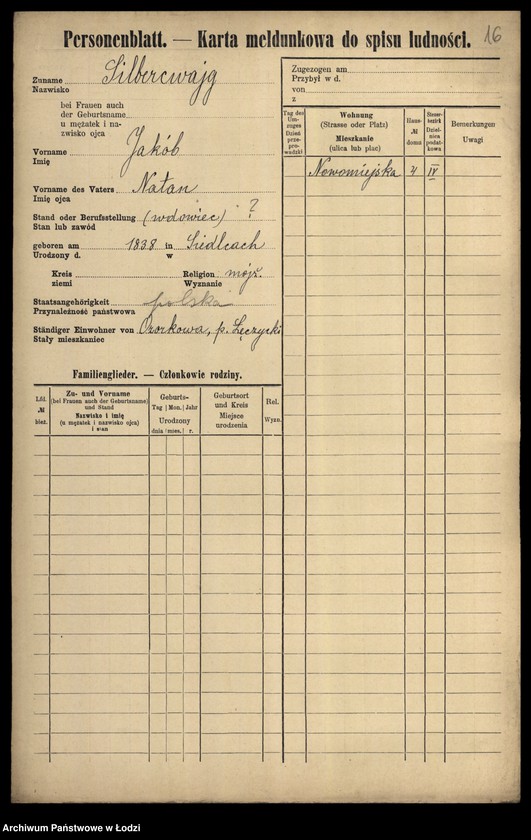 16
Personenblatt. — Karta meldunkowa do spisu ludności.
Zuname Silbercwajg
Nazwisko
bei Frauen auch
der Geburtsname
u mężatek i na-
zwisko ojca
Vorname Jakób
Imię
Vorname des Vaters Natan
Imię ojca
Stand oder Berufsstellung (wdowiec) ?
Stan lub zawód
geboren am 1838 in Siedlcach
Urodzony d. w
Kreis Religion mojż.
ziemi Wyznanie
Staatsangehörigkeit polska
Przynależność państwowa
Ständiger Einwohner von Ozorkowa, p. Łęczycki
Stały mieszkaniec
Familienglieder. — Członkowie rodziny.
Lfd. № bież.
Zu- und Vorname
(bei Frauen auch der Geburtsname)
und Stand
Nazwisko i imię
(u mężatek i nazwisko ojca)
i stan
Geburts-
Tag | Mon. | Jahr
Urodzony
dnia | mies. | r.
Geburtsort
und Kreis
Miejsce
urodzenia
Rel.
Wyzn.
Zugezogen am
Przybył w d.
von
z
Tag des
Um-
zuges
Dzień
prze-
prowadzki
Wohnung
(Strasse oder Platz)
Mieszkanie
(ulica lub plac)
Haus-
№
domu
Steuer-
bezirk
Dziel-
nica
podat-
kowa
Bemerkungen
Uwagi
Nowomiejska 4 IV
Archiwum Państwowe w Łodzi